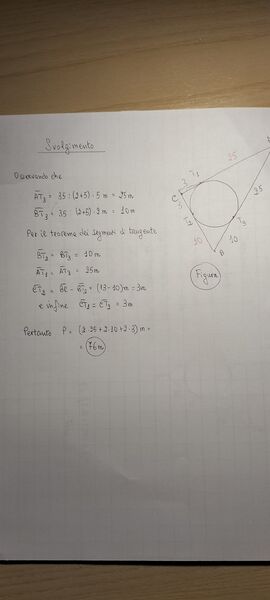 Svolgimento
Osservando che
AT₃ = 35 : (2+5) · 5 m = 25 m
BT₃ = 35 : (2+5) · 2 m = 10 m
Per il teorema dei segmenti di tangente
BT₂ = BT₃ = 10 m
AT₁ = AT₃ = 25m
CT₂ = BC - BT₂ = (13-10)m = 3m
e infine CT₁ = CT₂ = 3m
Pertanto P = (2·25+2·10+2·3)m =
= 76m
25
T₁
3
C
3
T₂
25
T₃
10
10
B
Figura